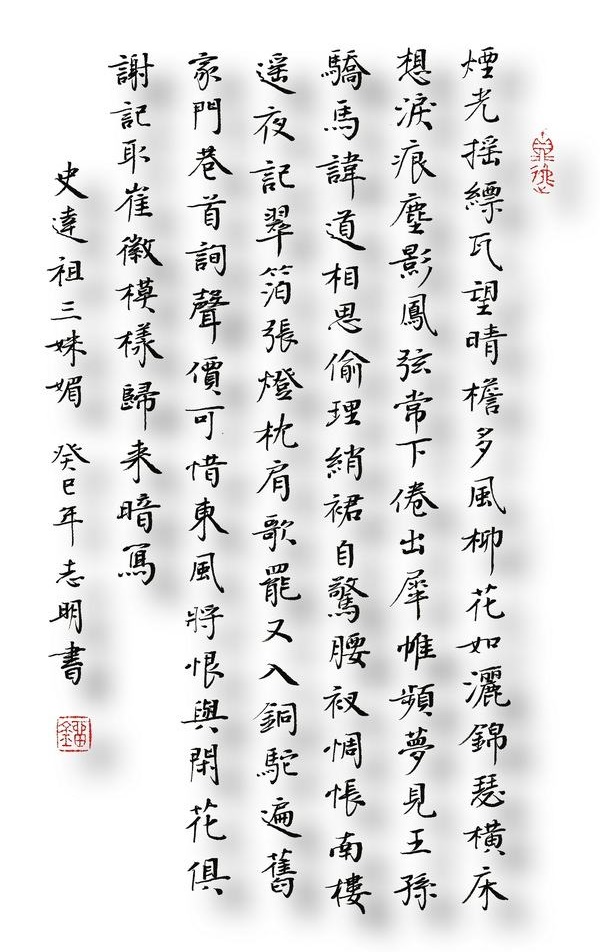 煙光摇縹瓦望晴檐多風柳花如灑錦瑟横床
想淚痕塵影鳳弦常下倦出犀帷頻夢見王孫
驕馬諱道相思偷理綃裙自驚腰衩惆悵南樓
遥夜記翠箔張燈枕肩歌罷又入銅駝遍舊
家門巷首詢聲價可惜東風將恨與閑花俱
謝記取崔徽模樣歸来暗寫
史達祖三姝媚 癸巳年志明書